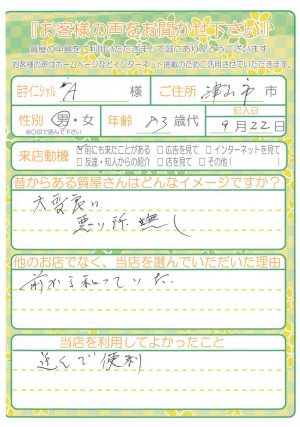 『お客様の声をお聞かせ下さい』
質屋の中島をご利用いただきまして誠にありがとうございます。
お客様の声はホームページなどインターネット掲載のために活用させていただきます。
苗字イニシャル A 様 ご住所 津山市 市
性別 男・女 年齢 23 歳代 記入日
※○印で囲んで下さい。 9月22日
来店動機 ☑前にも来たことがある □広告を見て □インターネットを見て
□友達・知人からの紹介 □店を見て □その他( )
昔からある質屋さんはどんなイメージですか?
大変良い
悪い所無し
他のお店でなく、当店を選んでいただいた理由
前から知っていた
当店を利用してよかったこと
便利